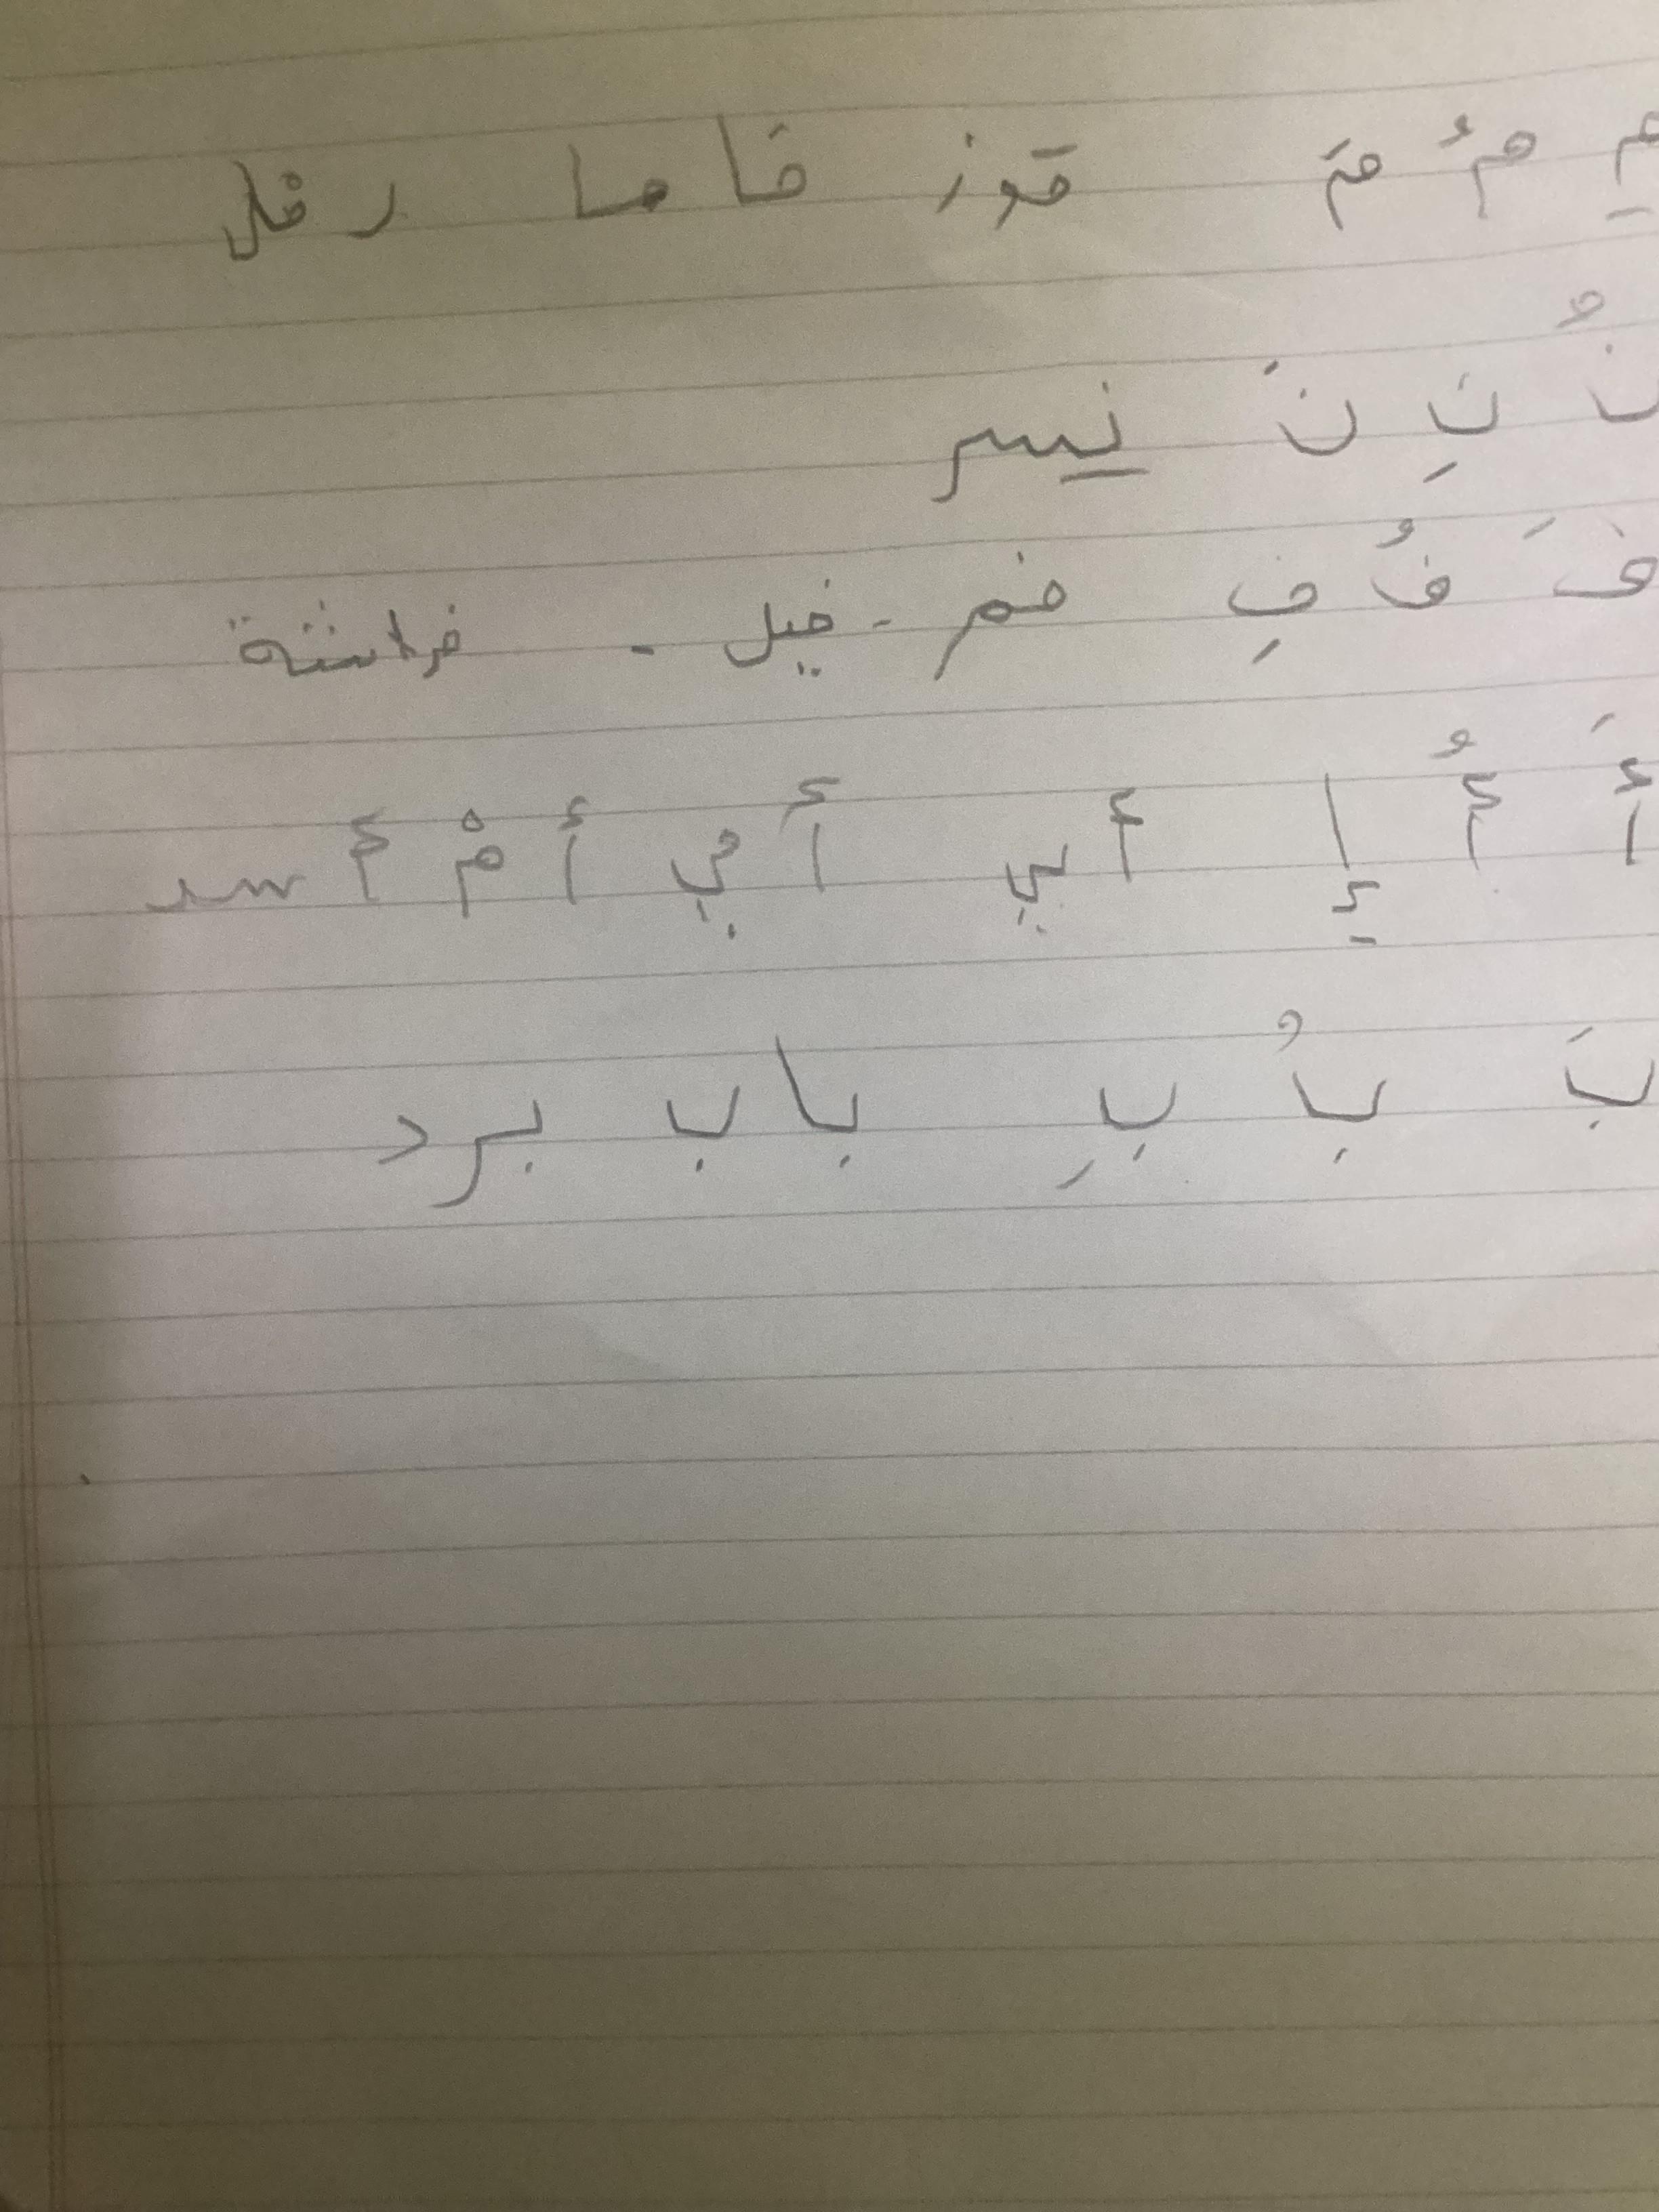 مِ مُ مَ موز ماما رمل
نُ نِ نَ نسر
فَ فُ فِ فم - فيل - فراشة
أَ أُ إِ أبي أبي أمْ أسد
بَ بُ بِ باب برد